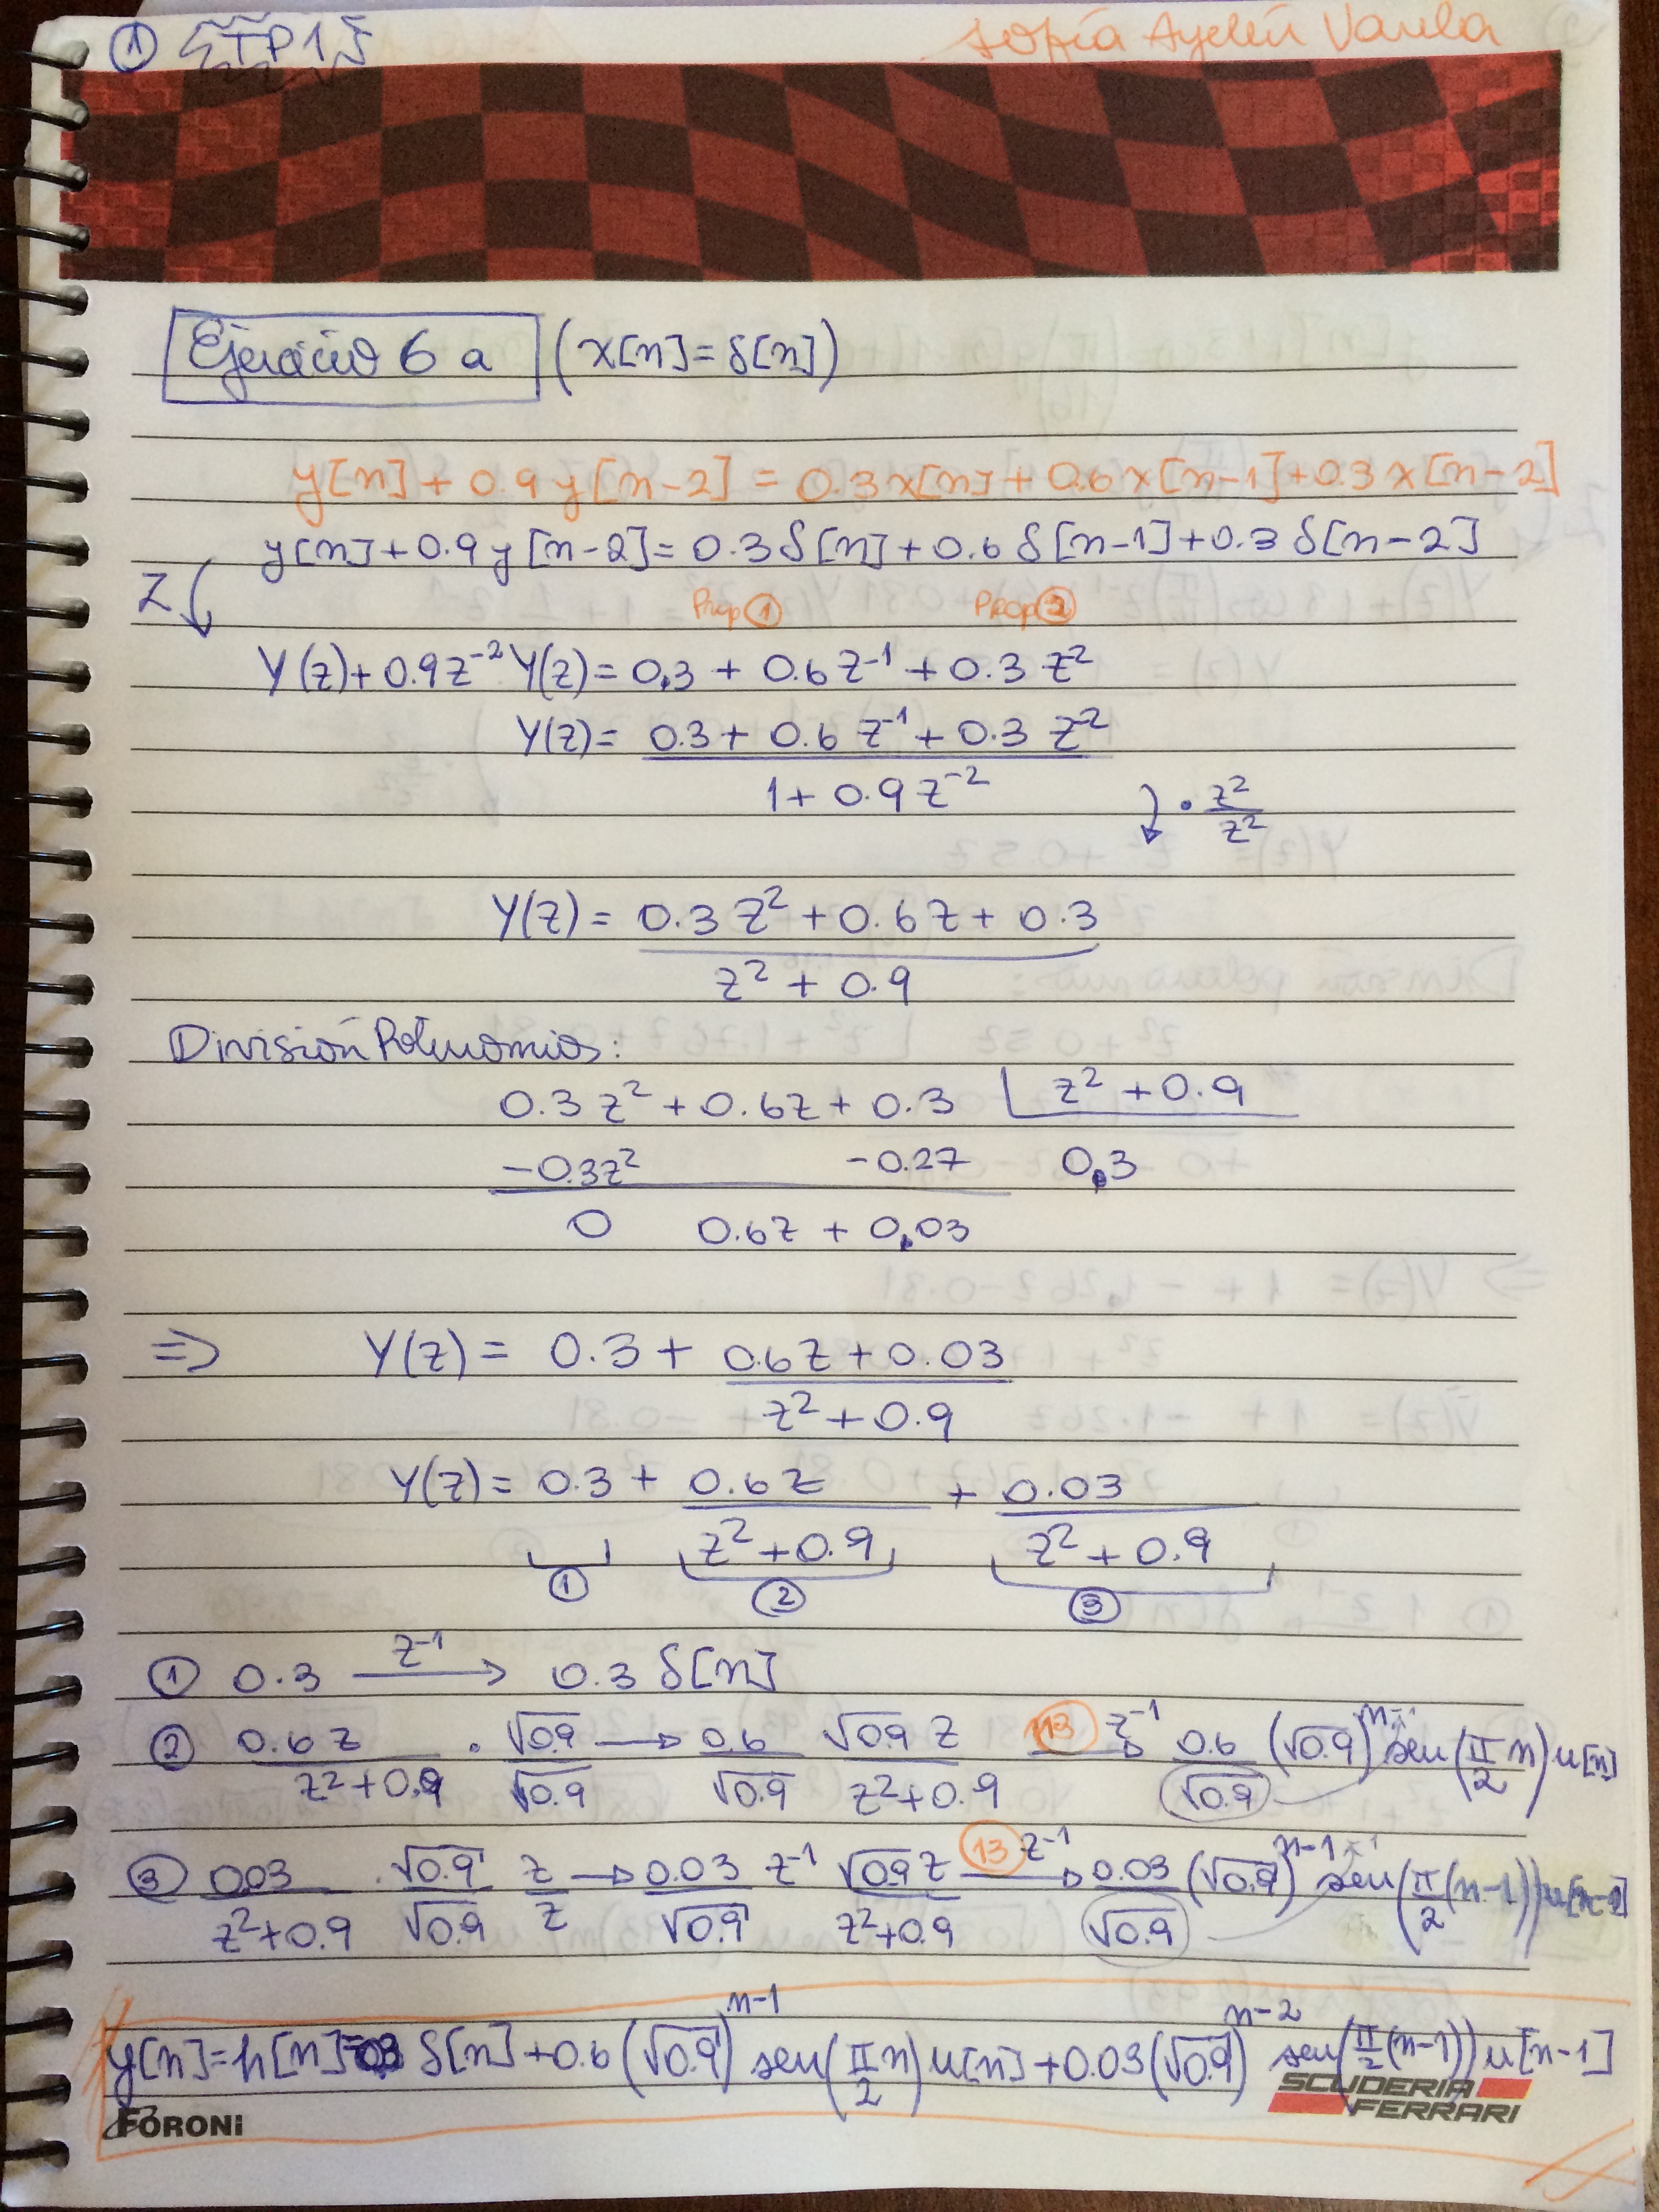 ① TP1
Sofía Aylén Varela
Ejercicio 6 a (x[n] = δ[n])
y[n] + 0.9 y[n-2] = 0.3x[n] + 0.6x[n-1] + 0.3x[n-2]
y[n] + 0.9 y[n-2] = 0.3 δ[n] + 0.6 δ[n-1] + 0.3 δ[n-2]
Z Prop ① Prop ②
Y(z) + 0.9z⁻² Y(z) = 0.3 + 0.6 z⁻¹ + 0.3 z⁻²
Y(z) = 0.3 + 0.6 z⁻¹ + 0.3 z⁻²
1 + 0.9 z⁻² · z²/z²
Y(z) = 0.3 z² + 0.6z + 0.3
z² + 0.9
División Polinomios:
0.3 z² + 0.6z + 0.3 z² + 0.9
-0.3z² -0.27 0.3
0 0.6z + 0.03
⇒ Y(z) = 0.3 + 0.6z + 0.03
z² + 0.9
Y(z) = 0.3 + 0.6z + 0.03
z² + 0.9 z² + 0.9
① ② ③
① 0.3 z⁻¹→ 0.3 δ[n]
② 0.6z/(z²+0.9) · √0.9/√0.9 → 0.6/√0.9 √0.9 z/(z²+0.9) 13 z⁻¹→ 0.6/√0.9 (√0.9)ⁿ sen(π/2 n) u[n]
③ 0.03/(z²+0.9) · √0.9/√0.9 z/z → 0.03/√0.9 z⁻¹ √0.9z/(z²+0.9) 13 z⁻¹→ 0.03/√0.9 (√0.9)ⁿ⁻¹ sen(π/2 (n-1)) u[n-1]
y[n] = h[n] = 0.3 δ[n] + 0.6 (√0.9)ⁿ⁻¹ sen(π/2 n) u[n] + 0.03 (√0.9)ⁿ⁻² sen(π/2 (n-1)) u[n-1]
FORONI
SCUDERIA
FERRARI